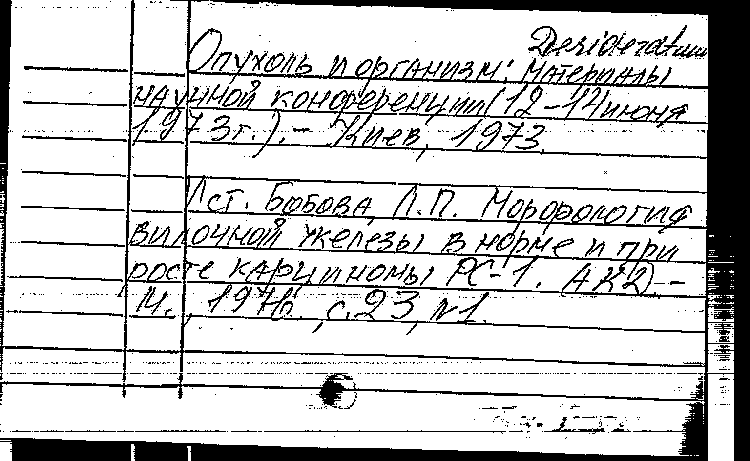 Desideratum
Опухоль и организм: Материалы
научной конференции (12-14 июня
1973г.).- Киев, 1973.
Ист. Бобова, Л.П. Морфология
вилочной железы в норме и при
росте карциномы РС-1. АКД.-
М., 1976. с.23, №1.